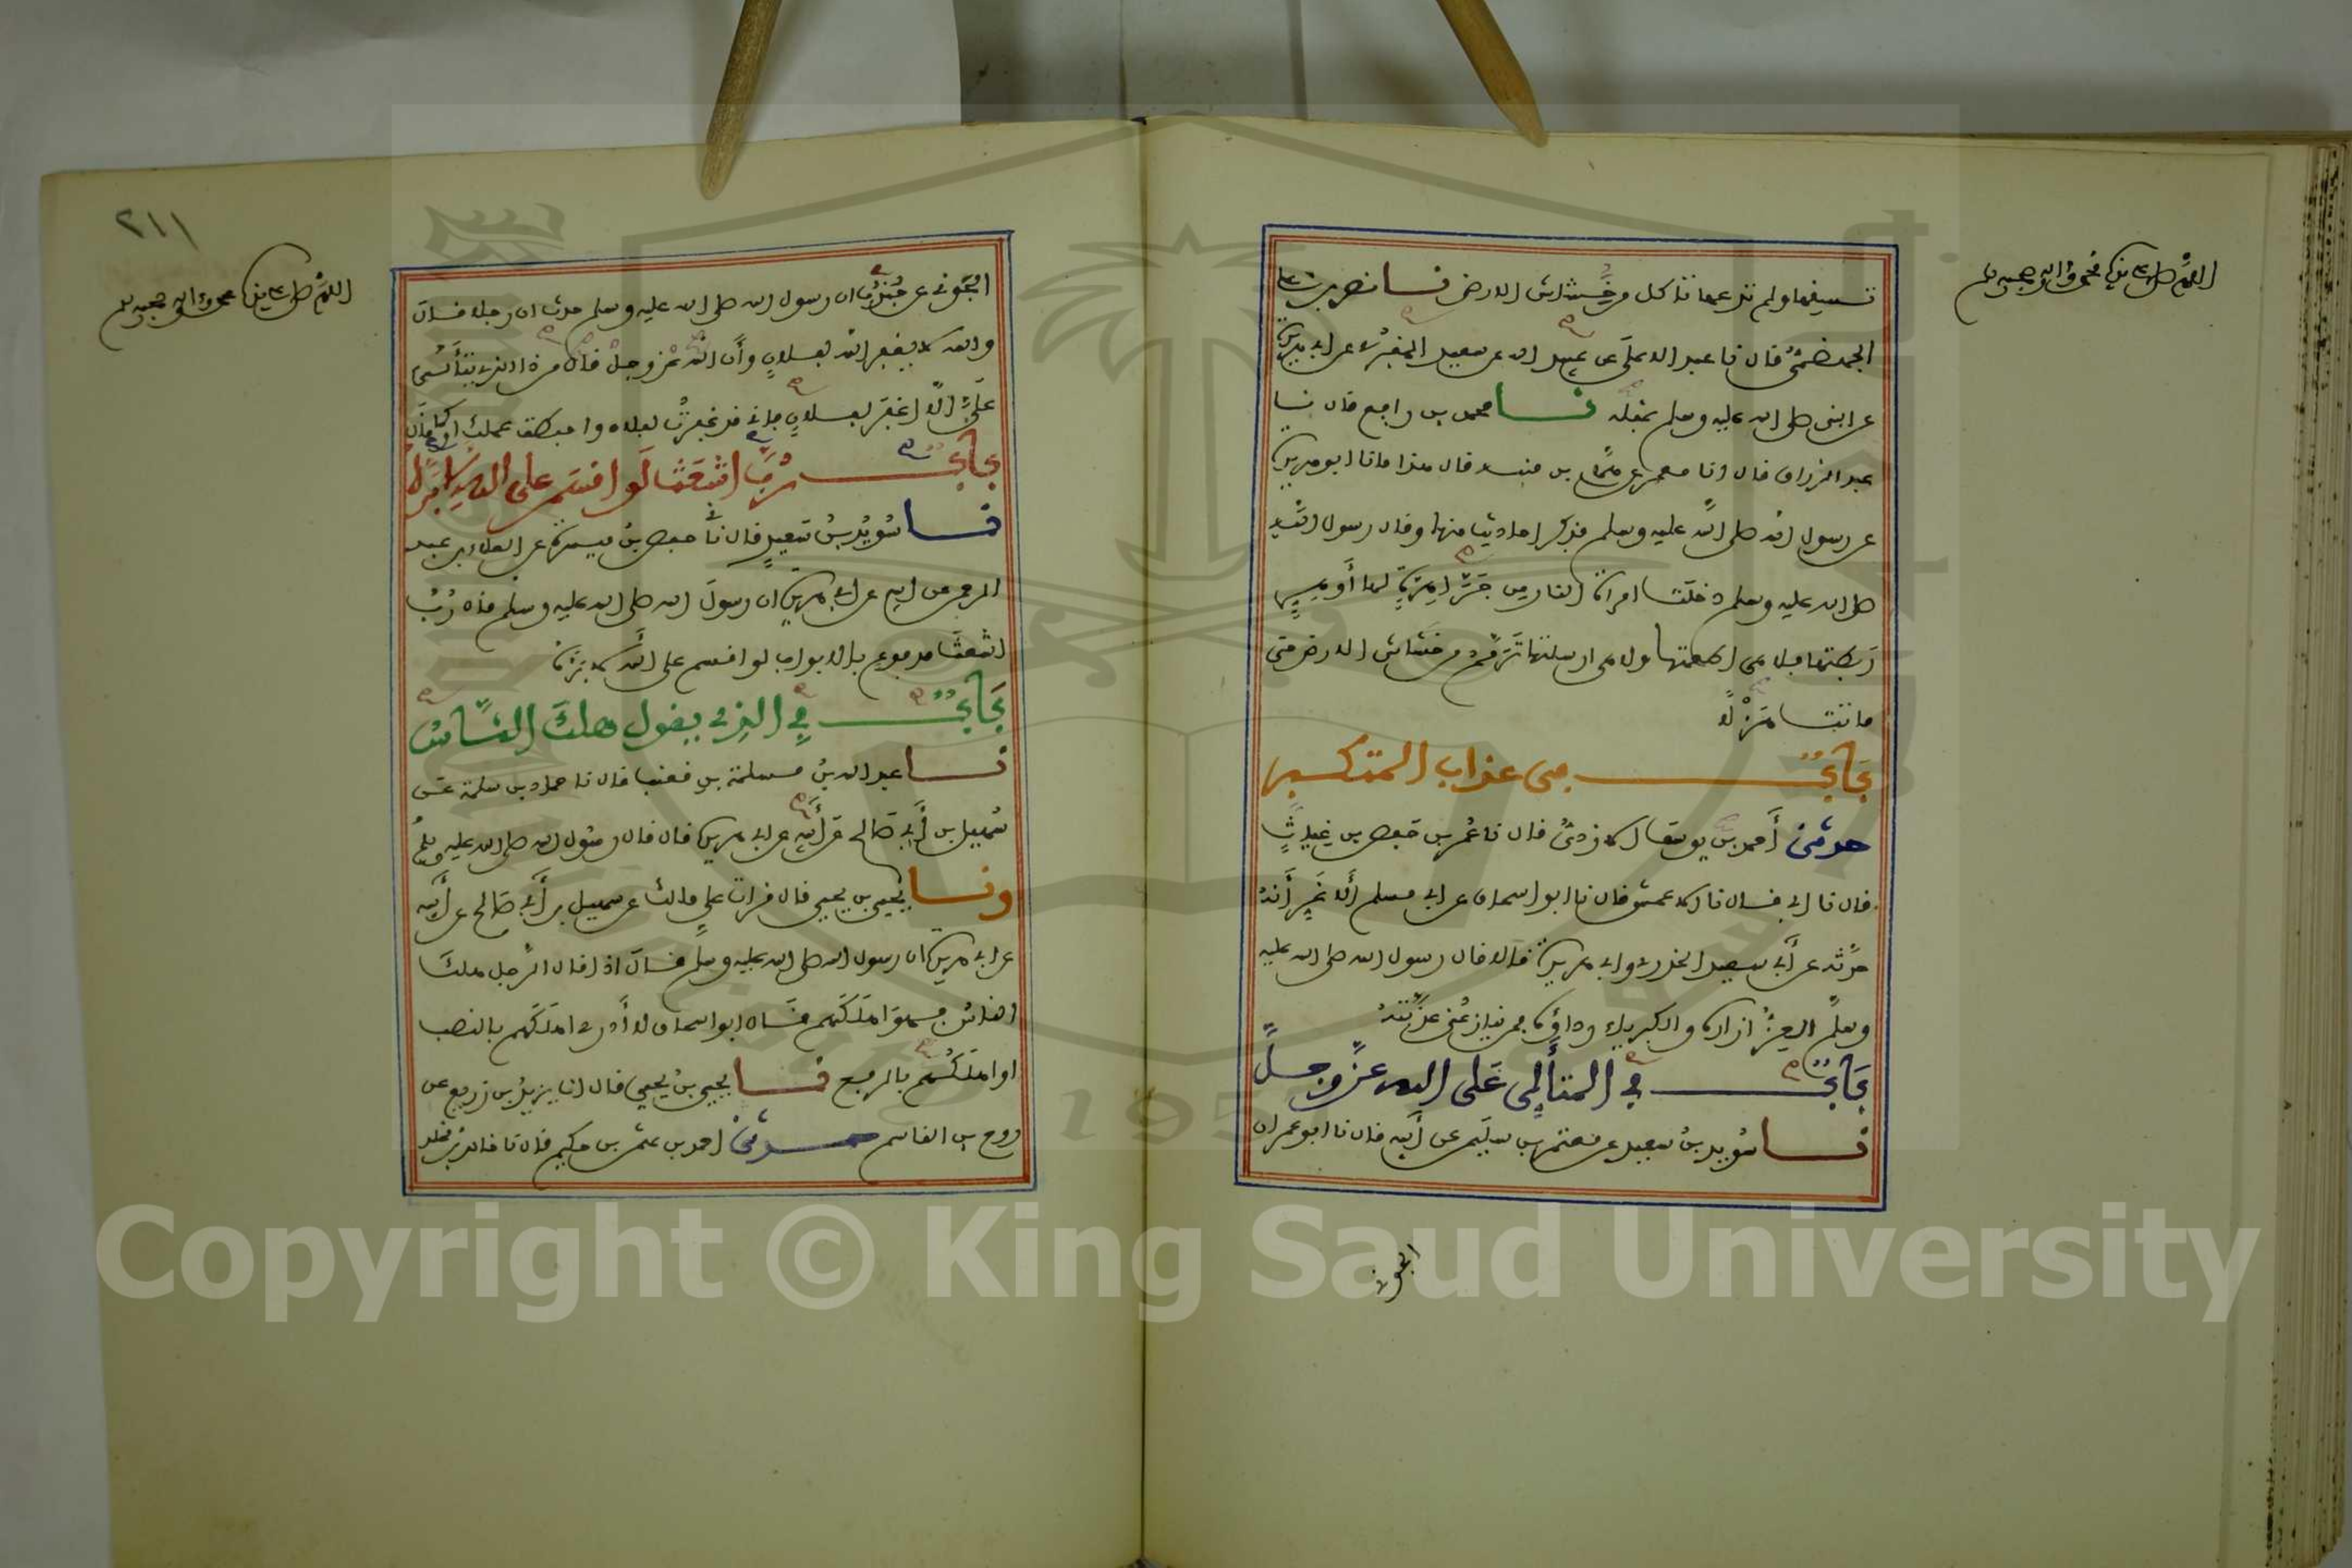 اللهم صل على سيدنا محمد وءاله وصحبه وسلم
تسقها ولم تدعها تاكل من خشاش الارض نا نصر بن علي
الجهضمي قال نا عبد الاعلى عن عبيد الله عن سعيد المقبري عن ابي هريرة
عن النبي صلى الله عليه وسلم بمثله نا محمد بن رافع قال نا
عبد الرزاق قال انا معمر عن همام بن منبه قال هذا ما نا ابو هريرة
عن رسول الله صلى الله عليه وسلم فذكر احاديث منها وقال رسول الله
صلى الله عليه وسلم دخلت امراة النار من جرا هرة لها أو هر
ربطتها فلا هي اطعمتها ولا هي ارسلتها ترمم من خشاش الارض حتى
ماتت هزلا
باب في عذاب المتكبر
حدثني أحمد بن يوسف الازدي قال نا عمر بن حفص بن غياث
قال نا ابي قال نا الاعمش قال نا ابو اسحاق عن ابي مسلم الاغر أنه
حدثه عن أبي سعيد الخدري وابي هريرة قالا قال رسول الله صلى الله عليه
وسلم العز ازاره والكبرياء رداؤه فمن ينازعني عذبته
باب في المتألي على الله عز وجل
نا سويد بن سعيد عن معتمر بن سليم عن أبيه قال نا ابو عمران
الجوني
٢١١
اللهم صل على سيدنا محمد وءاله وصحبه وسلم
الجوني عن جندب ان رسول الله صلى الله عليه وسلم حدث ان رجلا قال
والله لا يغفر الله لفلان وأن الله عز وجل قال من ذا الذي يتألى
علي الا اغفر لفلان فاني قد غفرت لفلان واحبطت عملك او كما قال
باب رب اشعث لو اقسم على الله لابره
نا سويد بن سعيد قال ني حفص بن ميسرة عن العلاء بن عبد
الرحمن عن ابيه عن ابي هريرة ان رسول الله صلى الله عليه وسلم قال رب
اشعث مدفوع بالابواب لو اقسم على الله لابره
باب في الذي يقول هلك الناس
نا عبد الله بن مسلمة بن قعنب قال نا حماد بن سلمة عن
سهيل بن أبي صالح عن أبيه عن ابي هريرة قال قال رسول الله صلى الله عليه وسلم
ونا يحيى بن يحيى قال قرات على مالك عن سهيل بن أبي صالح عن أبيه
عن ابي هريرة ان رسول الله صلى الله عليه وسلم قال اذا قال الرجل هلك
الناس فهو اهلكهم قال ابو اسحاق لا أدري اهلكهم بالنصب
او اهلكهم بالرفع نا يحيى بن يحيى قال انا يزيد بن زريع عن
روح بن القاسم حدثني احمد بن عثمن بن حكيم قال نا خالد بن مخلد
Copyright © King Saud University